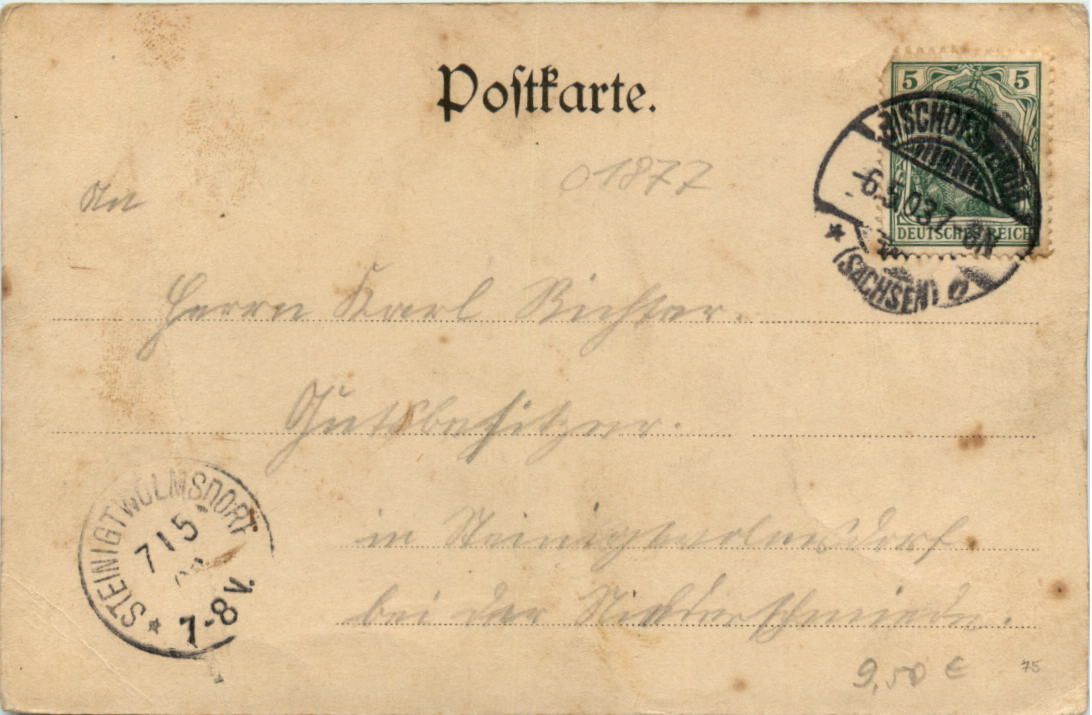 Postkarte.
5 5
DEUTSCHES REICH
BISCHOFSWERDA
-6.5.03.7-8N
* (SACHSEN) a
01877
An
Herrn Karl Richter.
Gutsbesitzer.
in Steinigtwolmsdorf
bei der Niederschmiede.
STEINIGTWOLMSDORF
7 5
* 7-8V.
9,50 €
75